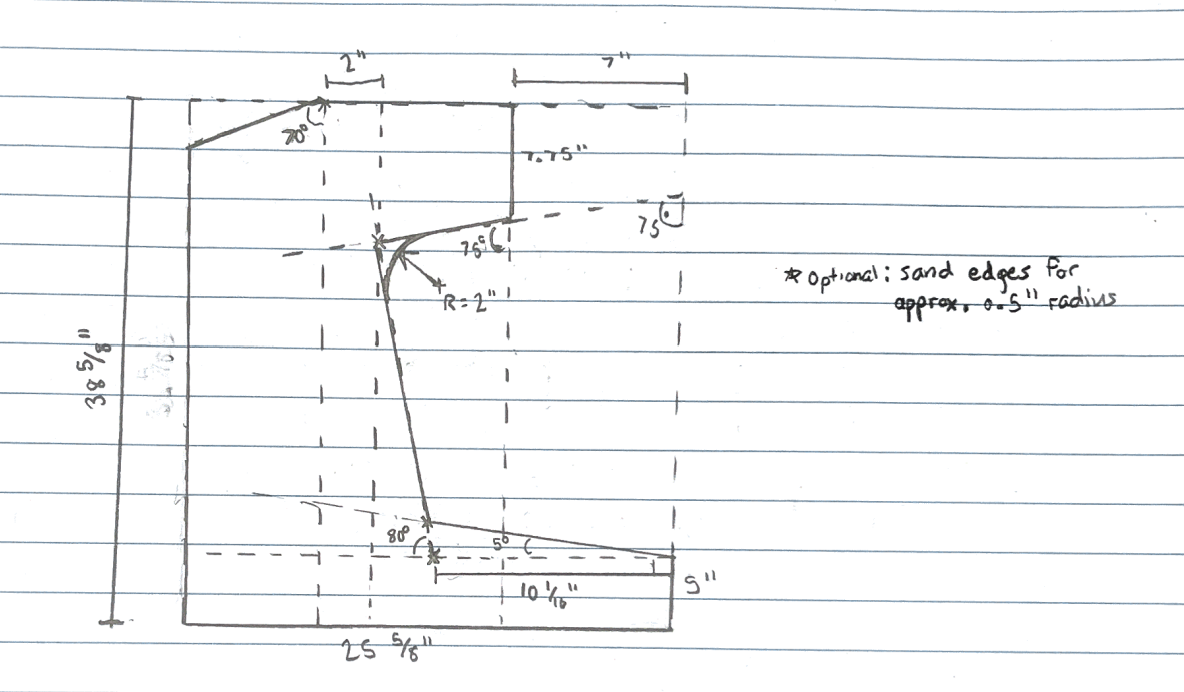 2"
7"
70°
7.75"
75
75°
R=2"
* Optional: sand edges for
approx. 0.5" radius
38 5/8"
80°
5°
10 1/16"
5"
25 5/8"